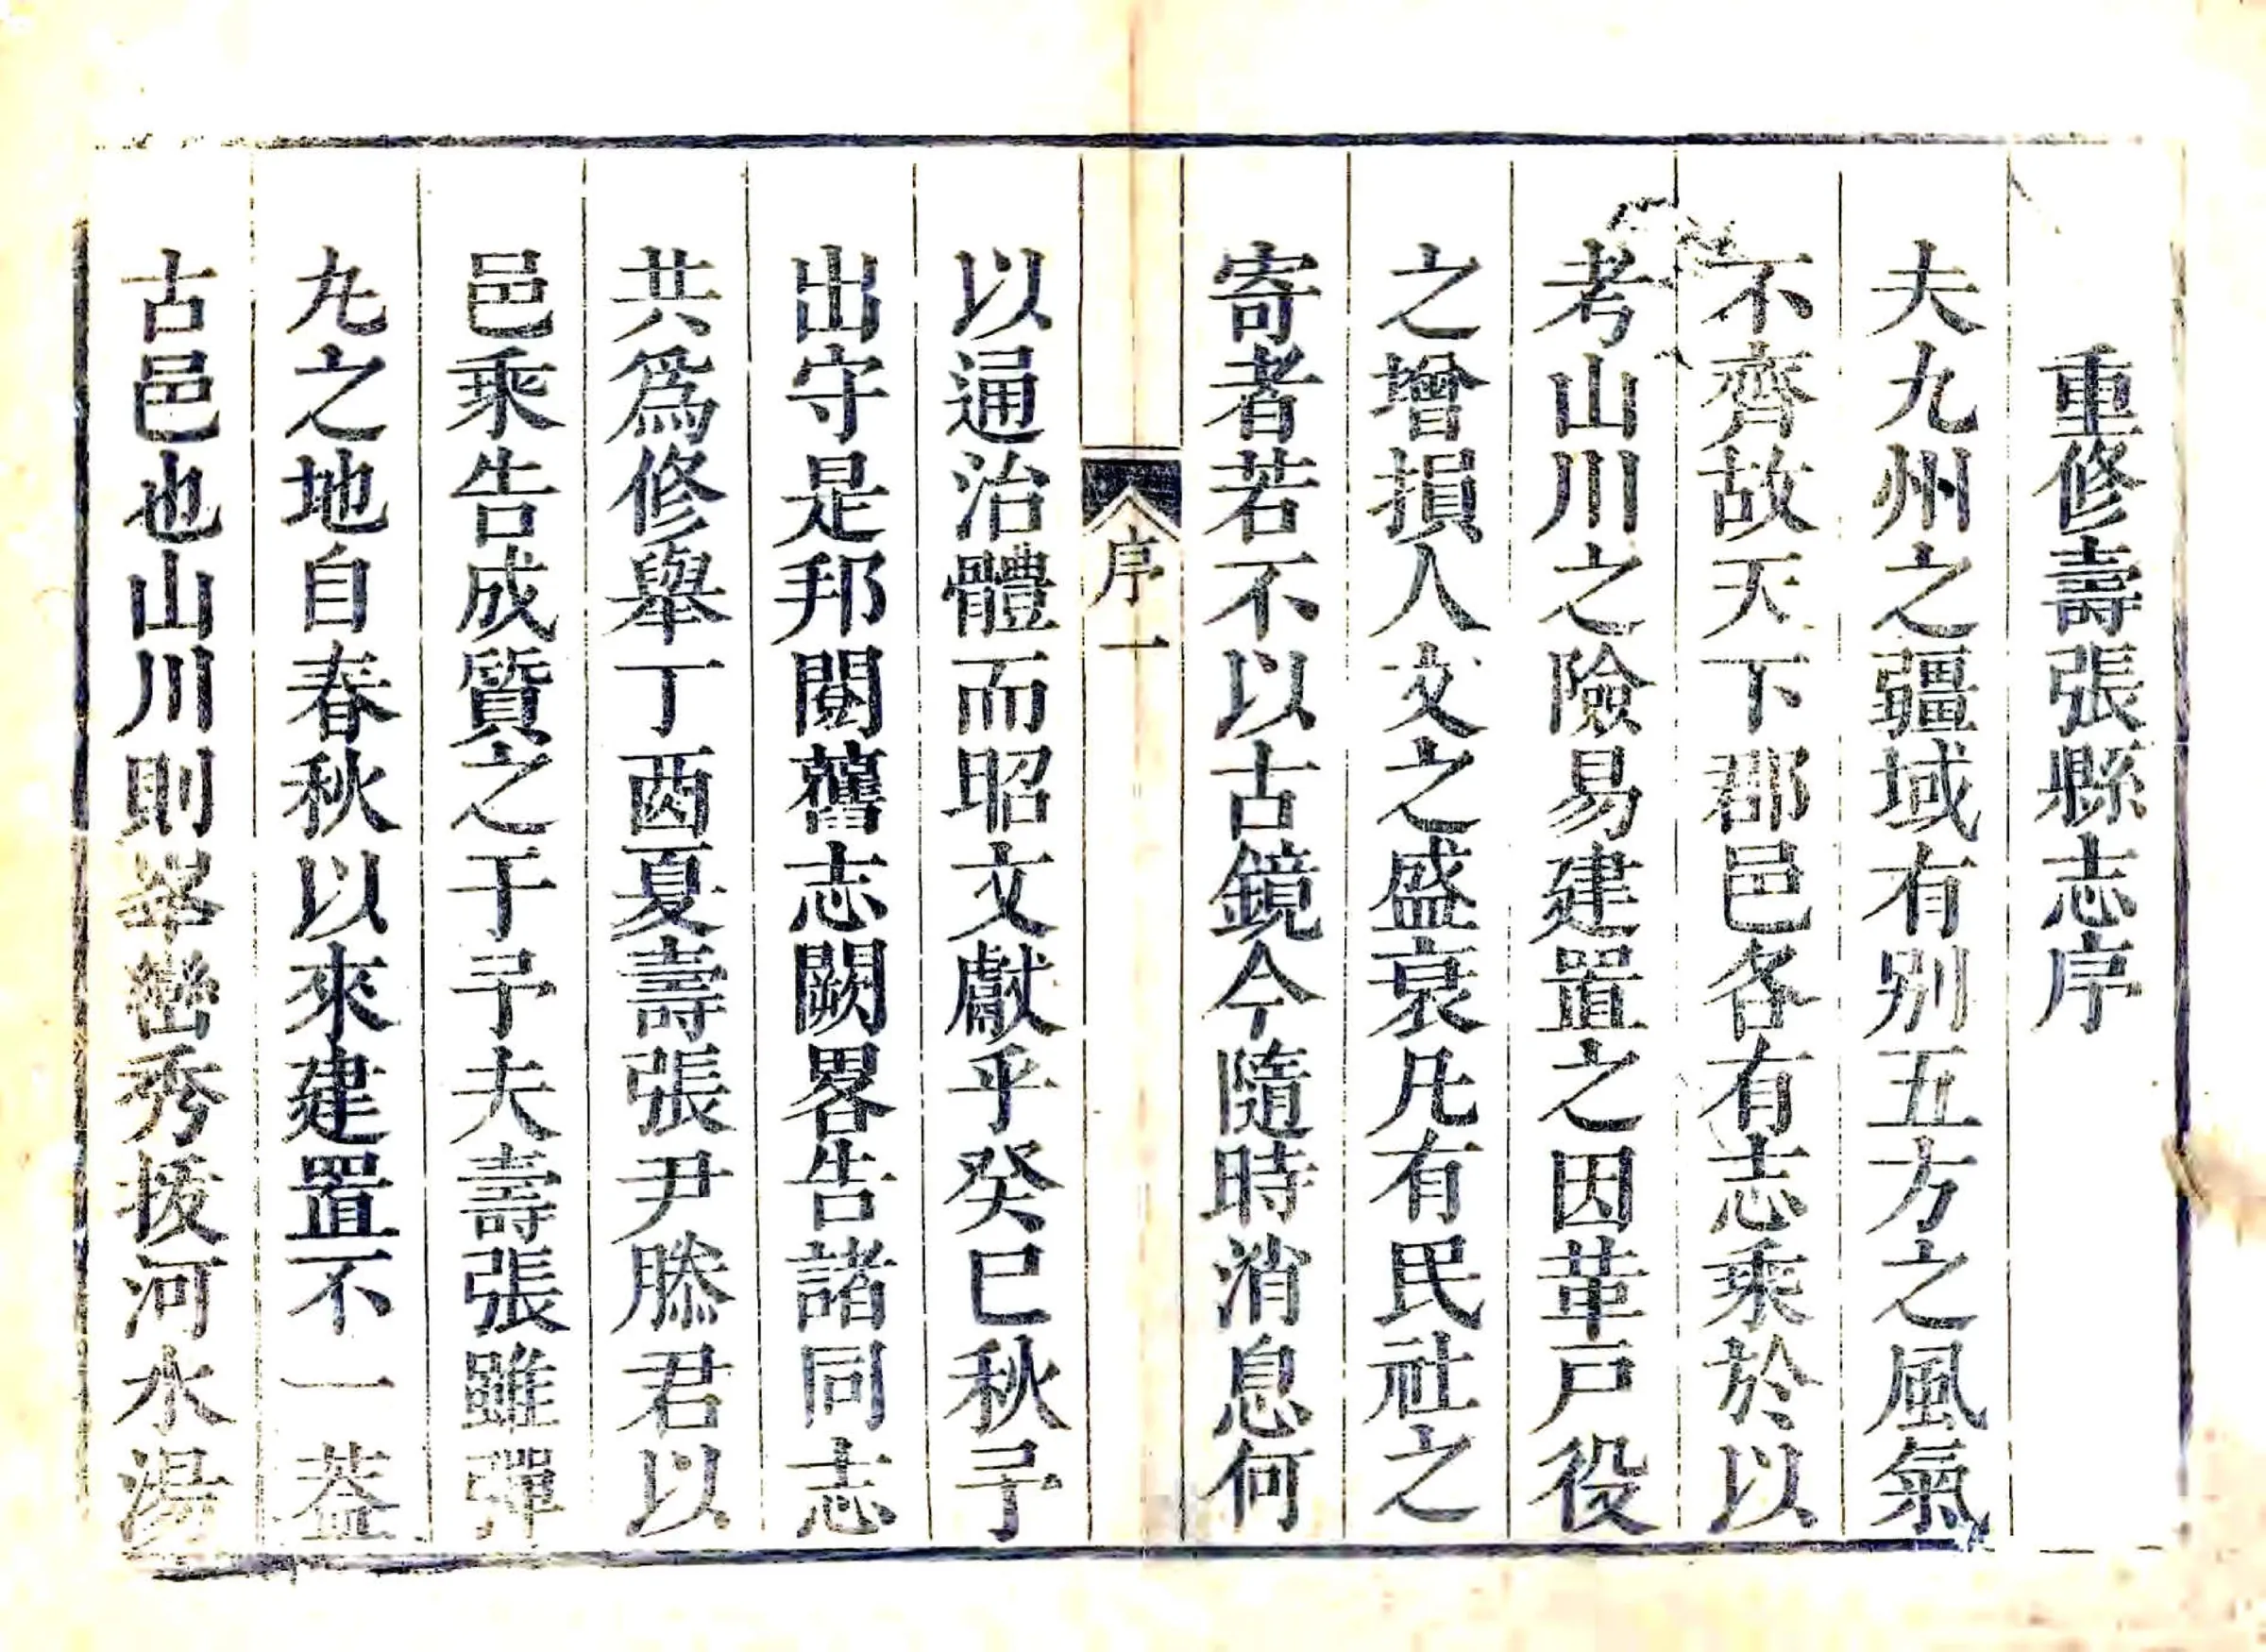 重修壽張縣志序
夫九州之疆域有别五方之風氣
不齊故天下郡邑各有志乘於以
考山川之險易建置之因革戸役
之增損人文之盛衰凡有民社之
寄者若不以古鏡今隨時消息何
序一
以通治體而昭文獻乎癸巳秋予
出守是邦閱舊志闕畧告諸同志
共爲修舉丁酉夏壽張尹滕君以
邑乘告成質之于予夫壽張雖彈
九之地自春秋以來建置不一葢
古邑也山川則峯巒秀拔河水湯